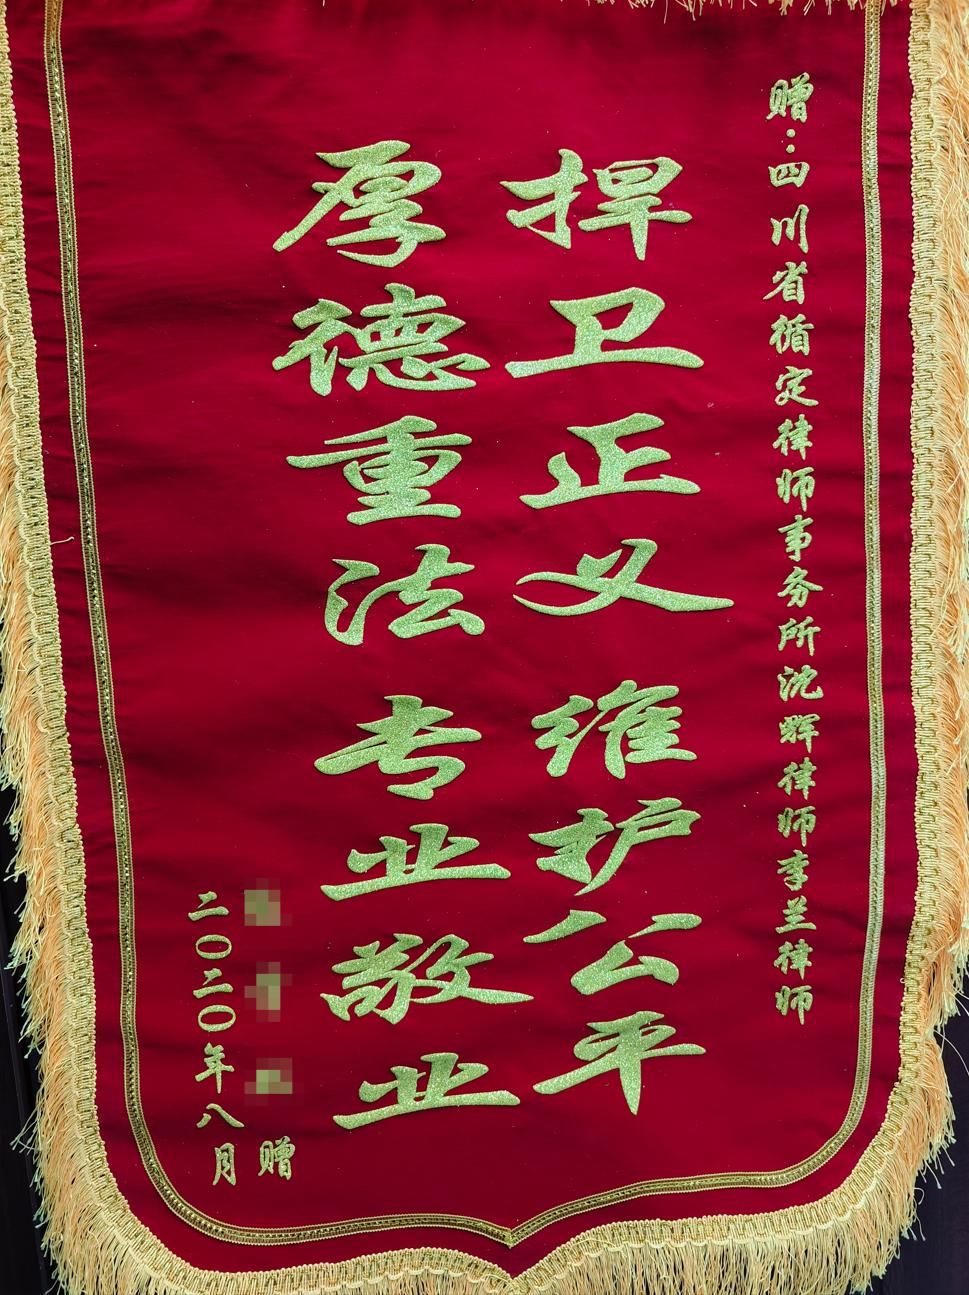 赠:四川省循定律师事务所沈辉律师李兰律师
捍卫正义 维护公平
厚德重法 专业敬业
赠
二〇二〇年八月